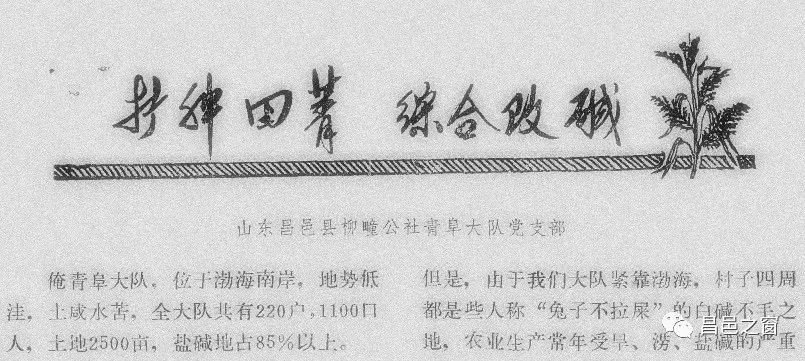 扩种田菁 综合改碱
山东昌邑县柳疃公社青阜大队党支部
俺青阜大队，位于渤海南岸，地势低
洼，土咸水苦，全大队共有220户，1100口
人，土地2500亩，盐碱地占85%以上。
但是，由于我们大队紧靠渤海，村子四周
都是些人称“兔子不拉屎”的白碱不毛之
地，农业生产常年受旱、涝、盐碱的严重
昌邑之窗